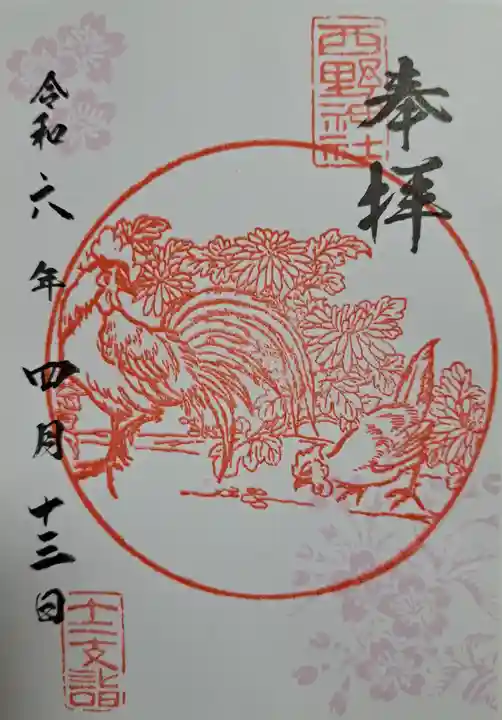 奉拝
西野神社
令和六年四月十三日
十二支詣